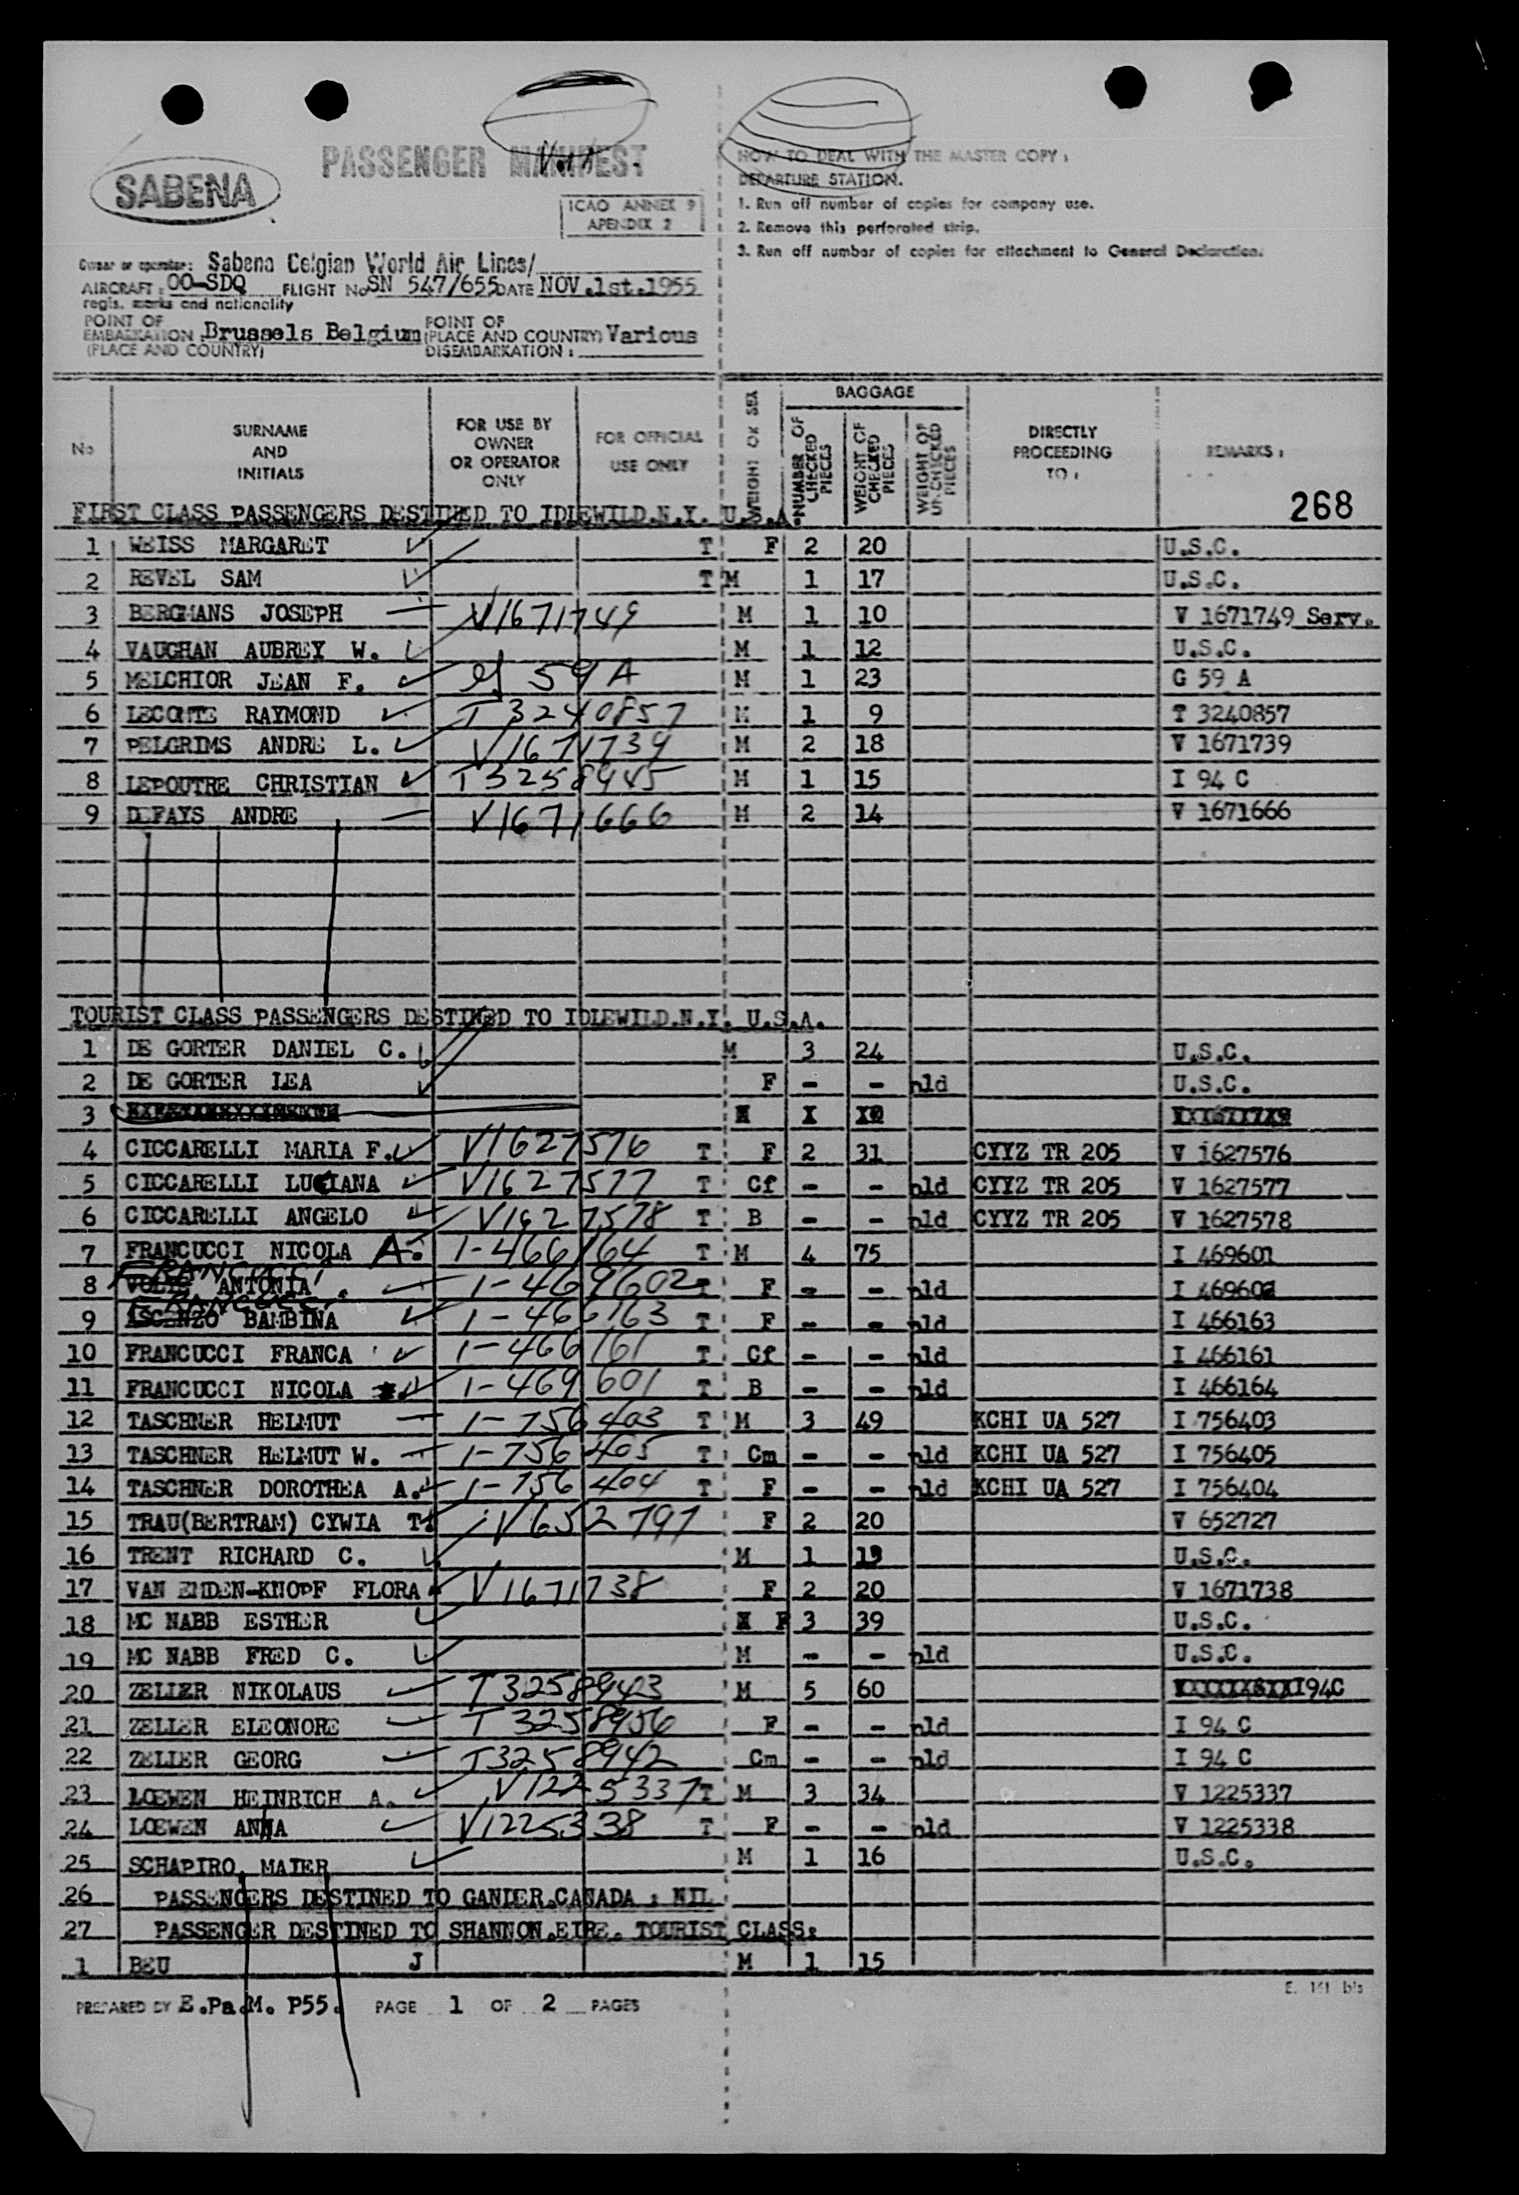 PASSENGER MANIFEST
SABENA
ICAO ANNEX 9
APENDIX 2
HOW TO DEAL WITH THE MASTER COPY :
DEPARTURE STATION.
1. Run off number of copies for company use.
2. Remove this perforated strip.
3. Run off number of copies for attachment to General Declaration.
Owner or operator: Sabena Belgian World Air Lines/
AIRCRAFT : OO-SDQ FLIGHT No SN 547/655 DATE NOV.1st.1955
regis. marks and nationality
POINT OF EMBARKATION : Brussels Belgium (PLACE AND COUNTRY)
POINT OF (PLACE AND COUNTRY) DISEMBARKATION : Various
No SURNAME AND INITIALS FOR USE BY OWNER OR OPERATOR ONLY FOR OFFICIAL USE ONLY WEIGHT OR SEX BAGGAGE NUMBER OF CHECKED PIECES WEIGHT OF CHECKED PIECES WEIGHT OF UN-CHECKED PIECES DIRECTLY PROCEEDING TO : REMARKS :
268
FIRST CLASS PASSENGERS DESTINED TO IDLEWILD.N.Y. U.S.A.
1 WEISS MARGARET T F 2 20 U.S.C.
2 REVEL SAM T M 1 17 U.S.C.
3 BERGMANS JOSEPH V1671749 M 1 10 V 1671749 Serv.
4 VAUGHAN AUBREY W. M 1 12 U.S.C.
5 MELCHIOR JEAN F. 59 A M 1 23 G 59 A
6 LECOMTE RAYMOND T 3240857 M 1 9 T 3240857
7 PELGRIMS ANDRE L. V1671739 M 2 18 V 1671739
8 LEPOUTRE CHRISTIAN T3258945 M 1 15 I 94 C
9 DEFAYS ANDRE V1671666 M 2 14 V 1671666
TOURIST CLASS PASSENGERS DESTINED TO IDLEWILD.N.Y. U.S.A.
1 DE GORTER DANIEL C. M 3 24 U.S.C.
2 DE GORTER LEA F - - pld U.S.C.
3
4 CICCARELLI MARIA F. V1627576 T F 2 31 CYYZ TR 205 V 1627576
5 CICCARELLI LUCIANA V1627577 T Cf - - pld CYYZ TR 205 V 1627577
6 CICCARELLI ANGELO V1627578 T B - - pld CYYZ TR 205 V 1627578
7 FRANCUCCI NICOLA A. 1-466164 T M 4 75 I 469601
FRANCUCCI
8 ANTONIA 1-469602 T F - - pld I 469602
FRANCUCCI
9 ASCENZO BAMBINA 1-466163 T F - - pld I 466163
10 FRANCUCCI FRANCA 1-466161 T Cf - - pld I 466161
11 FRANCUCCI NICOLA 1-469601 T B - - pld I 466164
12 TASCHNER HELMUT 1-756403 T M 3 49 KCHI UA 527 I 756403
13 TASCHNER HELMUT W. 1-756405 T Cm - - pld KCHI UA 527 I 756405
14 TASCHNER DOROTHEA A. 1-756404 T F - - pld KCHI UA 527 I 756404
15 TRAU(BERTRAM) CYWIA T. V652797 F 2 20 V 652727
16 TRENT RICHARD C. M 1 U.S.C.
17 VAN EMDEN-KNOPF FLORA V1671738 F 2 20 V 1671738
18 MC NABB ESTHER F 3 39 U.S.C.
19 MC NABB FRED C. M - - pld U.S.C.
20 ZELLER NIKOLAUS T3258943 M 5 60 I94C
21 ZELLER ELEONORE T 3258956 F - - pld I 94 C
22 ZELLER GEORG T3258942 Cm - - pld I 94 C
23 LOEWEN HEINRICH A. V1225337 T M 3 34 V 1225337
24 LOEWEN ANNA V1225338 T F - - pld V 1225338
25 SCHAPIRO MAIER M 1 16 U.S.C.
26 PASSENGERS DESTINED TO GANDER.CANADA : NIL
27 PASSENGER DESTINED TO SHANNON.EIRE. TOURIST CLASS:
1 BEU J M 1 15
E. 141 bis
PREPARED BY E.Pa.M. P55. PAGE 1 OF 2 PAGES